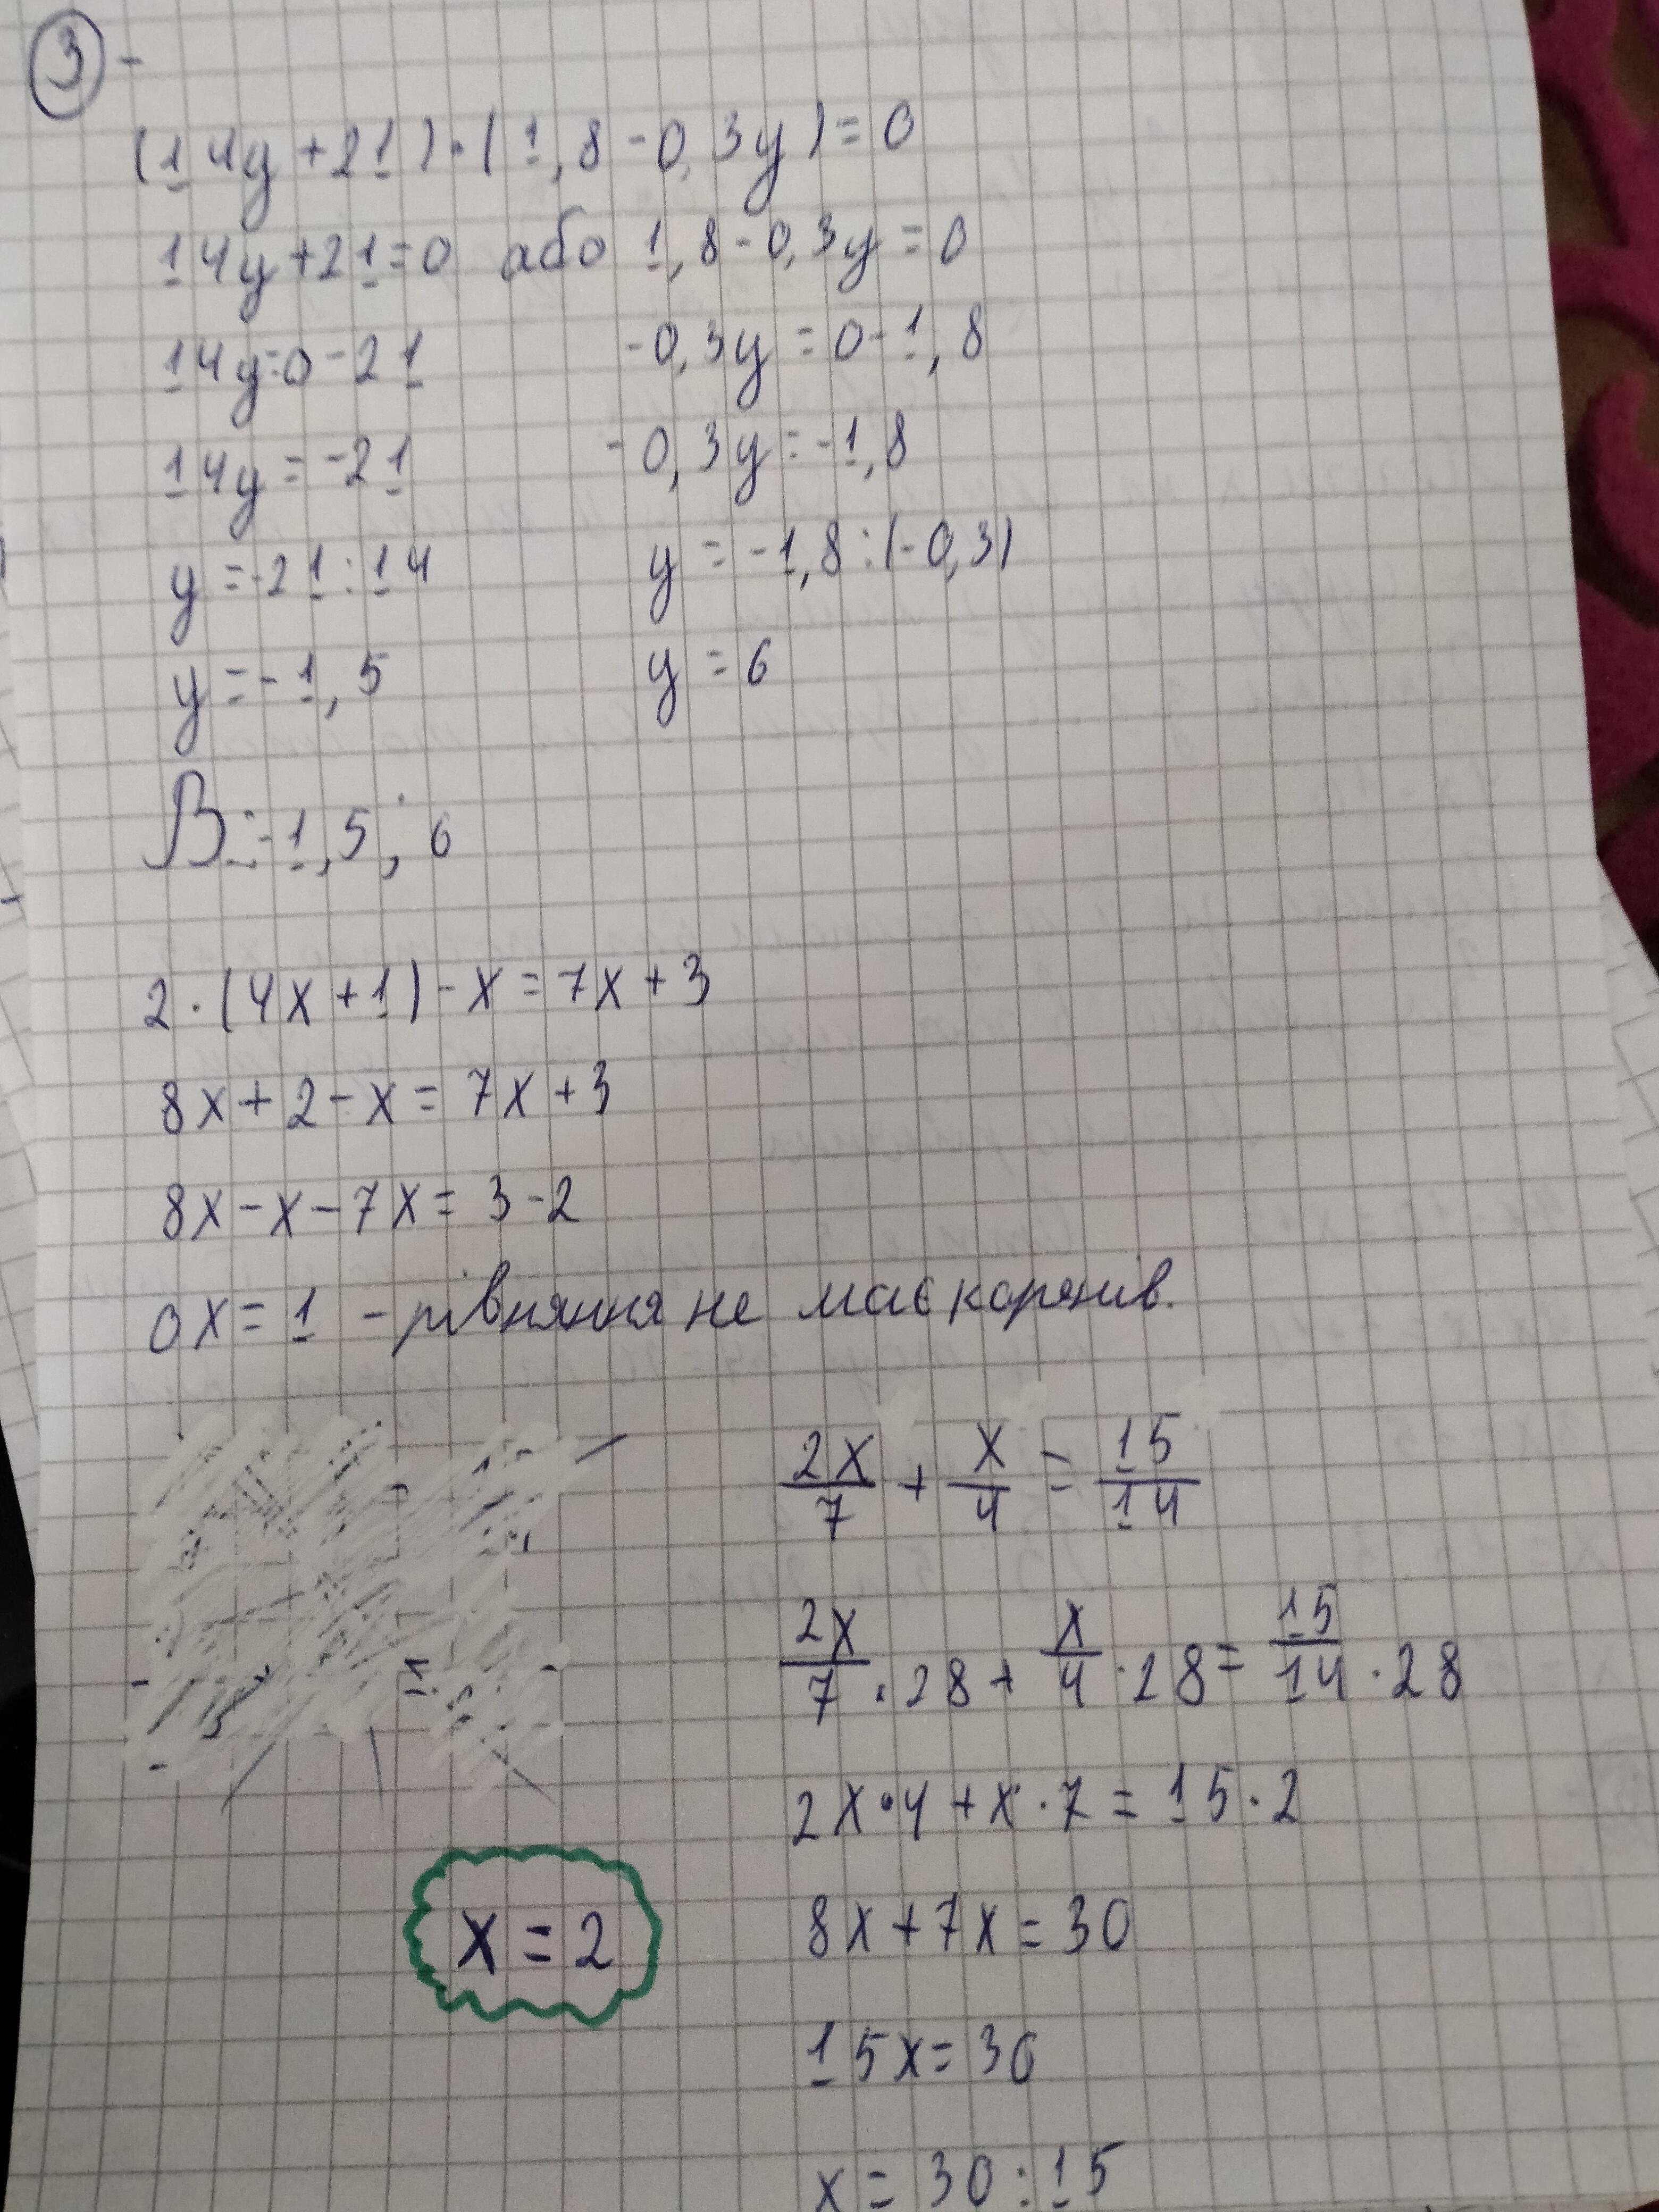 3 -
(14y+21)·(1,8-0,3y)=0
14y+21=0 або 1,8-0,3y=0
14y=0-21 -0,3y=0-1,8
14y=-21 -0,3y=-1,8
y=-21:14 y=-1,8:(-0,3)
y=-1,5 y=6
В.:-1,5; 6
2·(4x+1)-x=7x+3
8x+2-x=7x+3
8x-x-7x=3-2
0x=1 - рівняння не має коренів.
2x/7 + x/4 = 15/14
2x/7 ·28+ x/4 ·28= 15/14 ·28
2x·4+x·7=15·2
8x+7x=30
x=2
15x=30
x=30:15